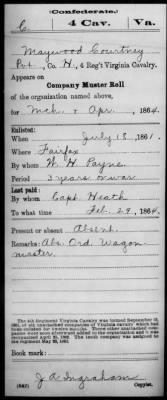 (Confederate.)
C 4 Cav. Va.
Maywood Courtney
Pvt., Co. H., 4 Reg't Virginia Cavalry.
Appears on
Company Muster Roll
of the organization named above,
for Mch. & Apr., 1864.
Enlisted:
When July 13, 1861
Where Fairfax
By whom W. H. Payne
Period 3 years or war
Last paid:
By whom Capt. Heath
To what time Feb. 29, 1864.
Present or absent Absent
Remarks: Abs. Ord. Wagon
master.
The 4th Regiment Virginia Cavalry was formed September
Book mark:
J A Ingraham
(642) Copyist.